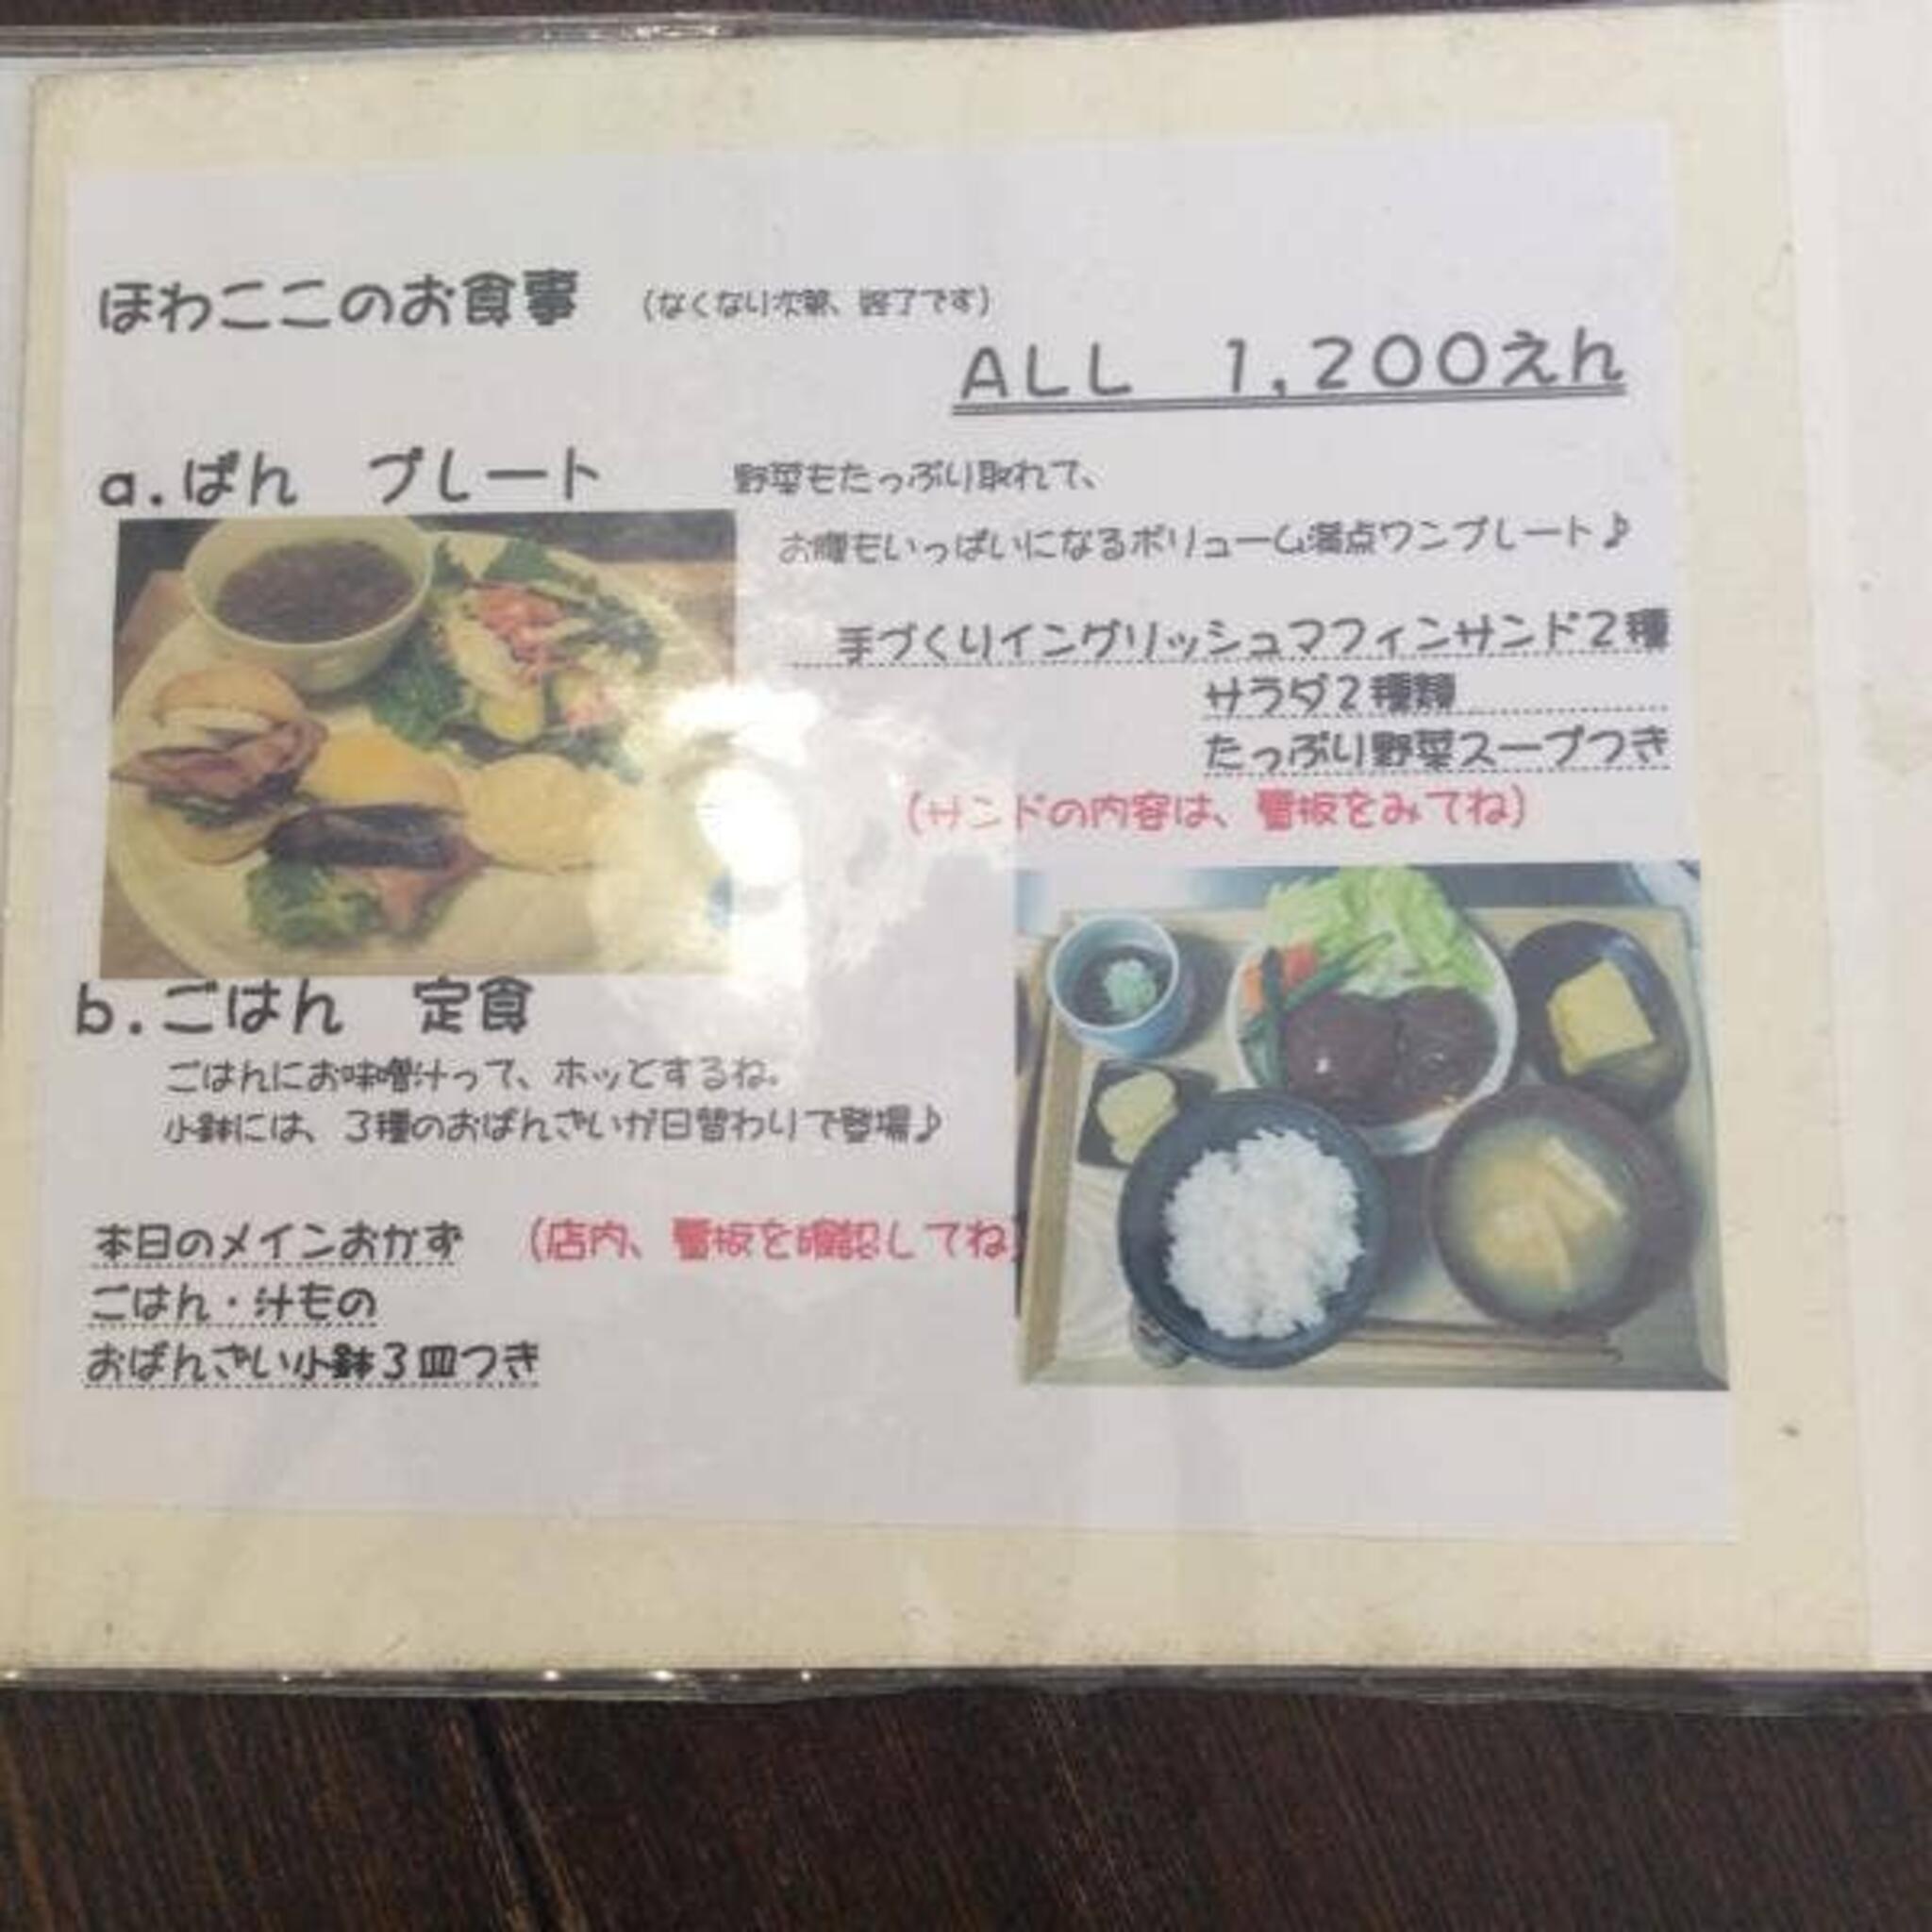 ほわここのお食事 (なくなり次第、終了です)
ALL 1,200えん
a.ぱん プレート
野菜もたっぷり取れて、
お腹もいっぱいになるボリューム満点ワンプレート♪
手づくりイングリッシュマフィンサンド2種
サラダ2種類
たっぷり野菜スープつき
(サンドの内容は、看板をみてね)
b.ごはん 定食
ごはんにお味噌汁って、ホッとするね。
小鉢には、3種のおばんざいが日替わりで登場♪
本日のメインおかず (店内、看板を確認してね)
ごはん・汁もの
おばんざい小鉢3皿つき